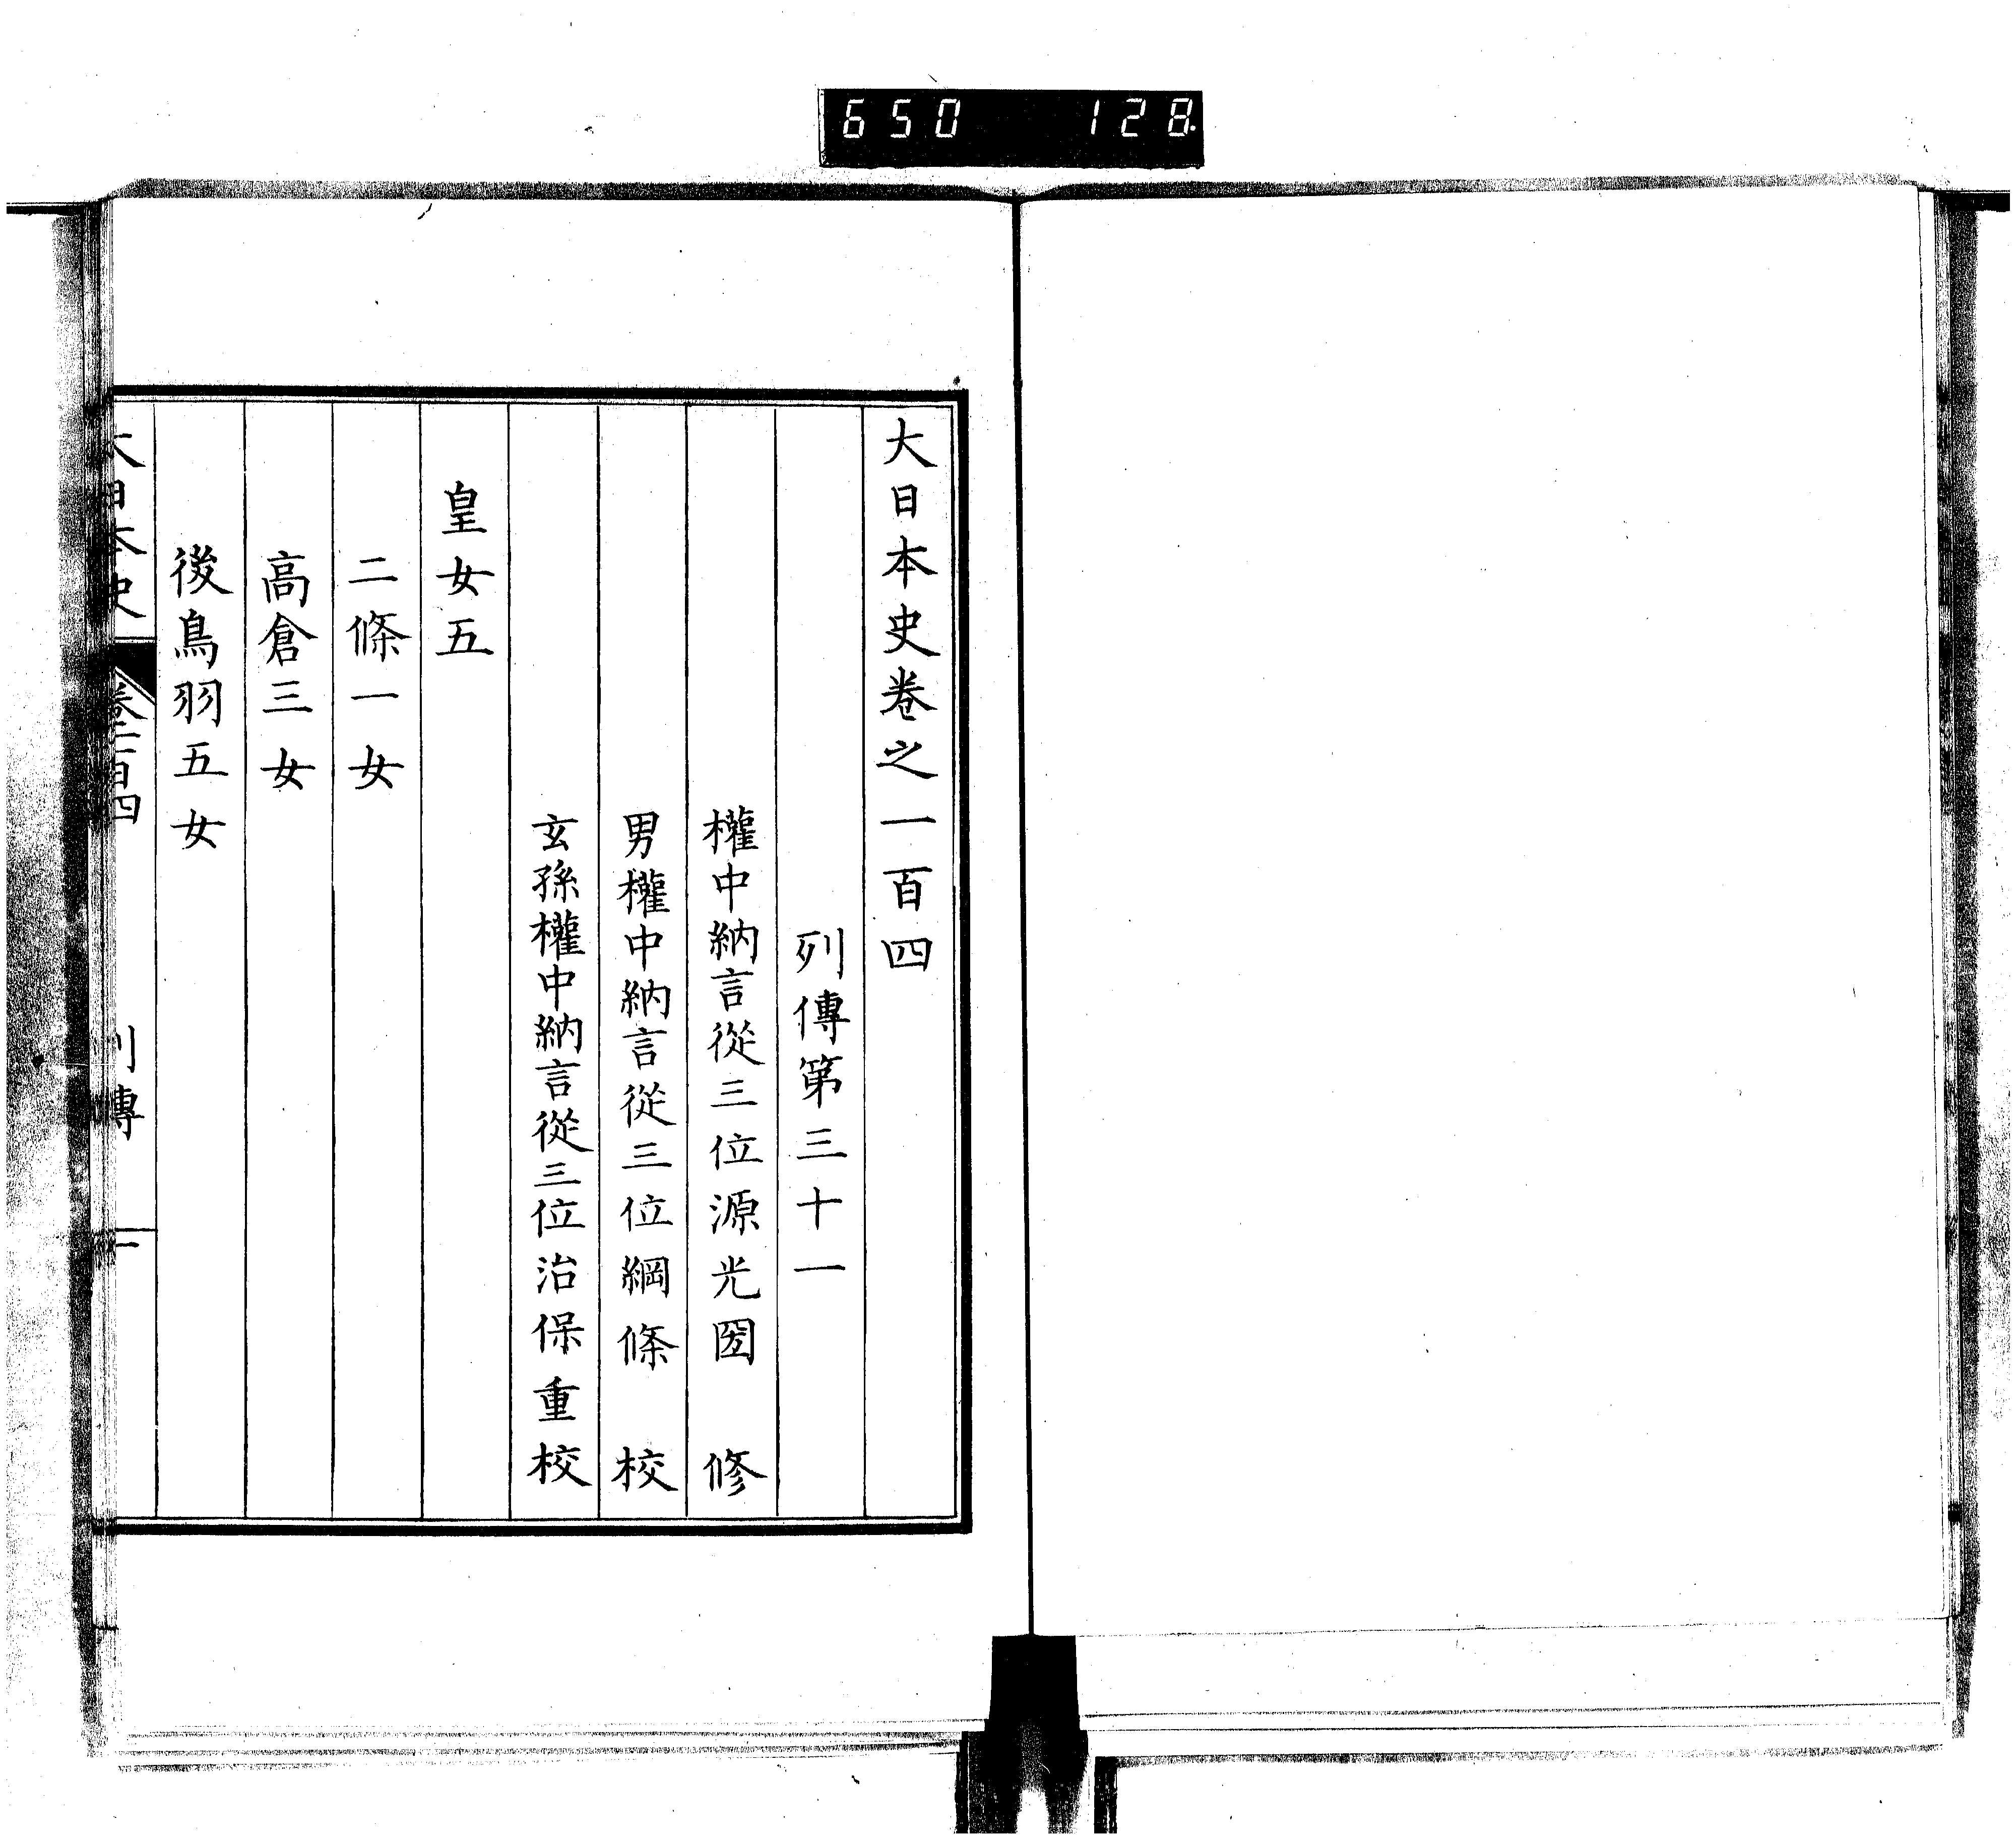 650 128
大日本史卷之一百四
列傳第三十一
權中納言從三位源光圀 修
男權中納言從三位綱條 校
玄孫權中納言從三位治保重校
皇女五
二條一女
高倉三女
後鳥羽五女
大日本史 卷一百四 列傳 一